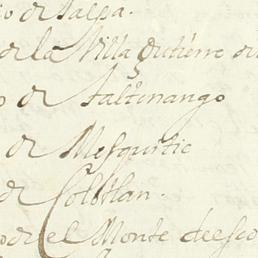 o de Jalpa.
de la Villa Gutierre de
o de Taltenango
de Mesquitic
de Colotlan.
o de el Monte de esco